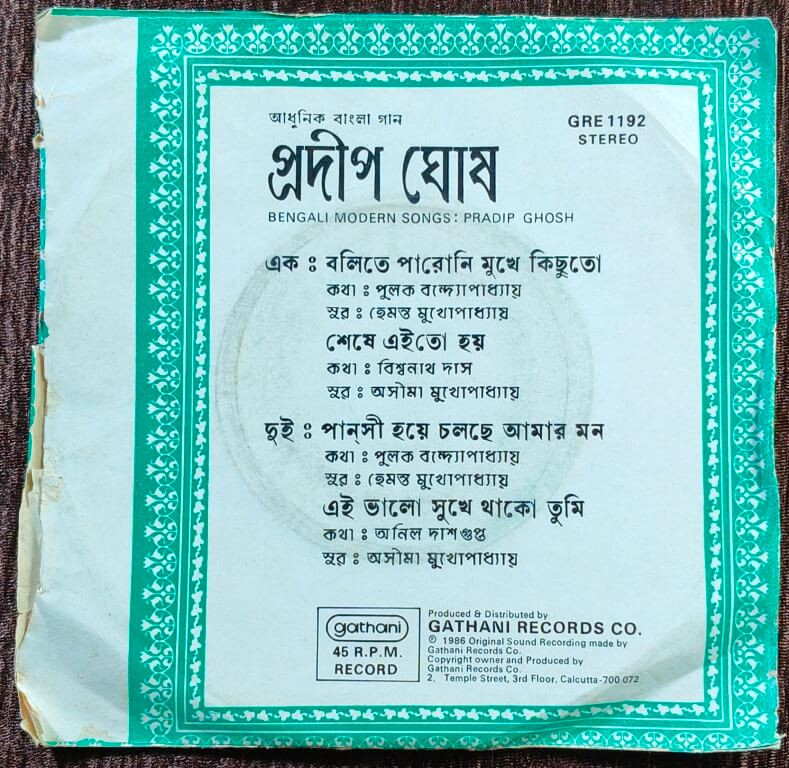 আধুনিক বাংলা গান
GRE 1192
STEREO
প্রদীপ ঘোষ
BENGALI MODERN SONGS: PRADIP GHOSH
এক : বলিতে পারোনি মুখে কিছুতো
কথা : পুলক বন্দ্যোপাধ্যায়
সুর : হেমন্ত মুখোপাধ্যায়
শেষে এইতো হয়
কথা : বিশ্বনাথ দাস
সুর : অসীমা মুখোপাধ্যায়
দুই : পান্‌সী হয়ে চলছে আমার মন
কথা : পুলক বন্দ্যোপাধ্যায়
সুর : হেমন্ত মুখোপাধ্যায়
এই ভালো সুখে থাকো তুমি
কথা : অনিল দাশগুপ্ত
সুর : অসীমা মুখোপাধ্যায়
gathani
45 R.P.M.
RECORD
Produced & Distributed by
GATHANI RECORDS CO.
℗ 1986 Original Sound Recording made by
Gathani Records Co.
Copyright owner and Produced by
Gathani Records Co.
2, Temple Street, 3rd Floor, Calcutta-700 072